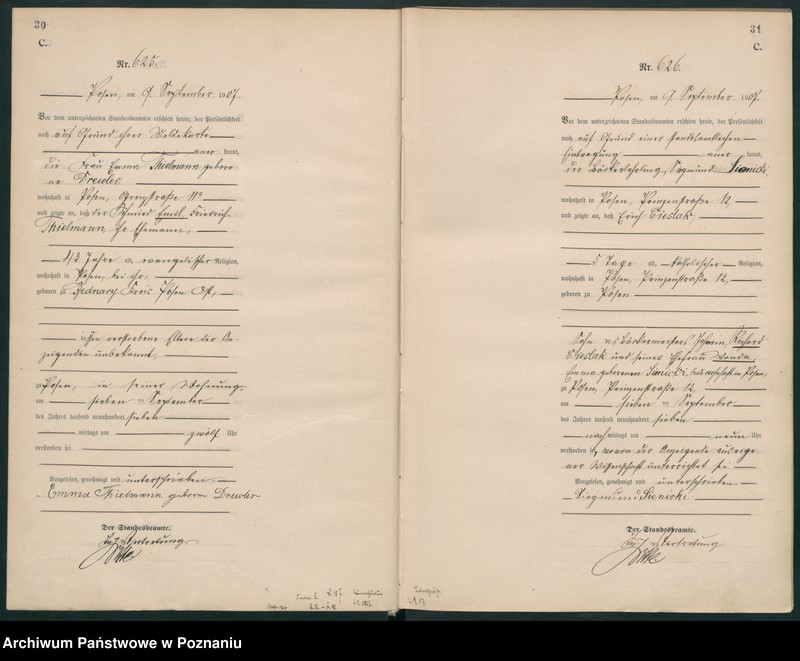 30
C.
Nr. 625.
Posen, am 9. September 1907.
Vor dem unterzeichneten Standesbeamten erschien heute, der Persönlichkeit
nach auf Grund ihrer Meldekarte
kannt,
die Frau Emma Thielmann gebore
ne Drewler
wohnhaft in Posen, 11a
und zeigte an, daß der Schmied Emil Friedrich
Thielmann, ihr Ehemann,
43 Jahre alt, evangelischer Religion,
wohnhaft in Posen, bei ihr,
geboren zu Bednary Kreis Posen Ost,
verstorbene Eltern der An
zeigenden unbekannt,
zu Posen, in seiner Wohnung,
am sieben ten September
des Jahres tausend neunhundert sieben
mittags um zwölf Uhr
verstorben sei.
Vorgelesen, genehmigt und unterschrieben.
Emma Thielmann geborn Drewler
Der Standesbeamte.
In Vertretung.
31
C.
Nr. 626.
Posen, am 9. September 1907.
Vor dem unterzeichneten Standesbeamten erschien heute, der Persönlichkeit
nach auf Grund einer standesamtlichen
Eintragung kannt,
der Bäckerlehrling Sigmund Sienicki,
wohnhaft in Posen, Prinzenstraße 12
und zeigte an, daß Erich Cieslak,
5 Tage alt, katholischer Religion,
wohnhaft in Posen, Prinzenstraße 12,
geboren zu Posen
Sohn des Bäckermeisters Richard
Cieslak und seiner Ehefrau Wanda,
Emma geborenen Sienicki, wohnhaft in Posen,
zu Posen, Prinzenstraße 12
am sieben ten September
des Jahres tausend neunhundert sieben
nach mittags um neun Uhr
verstorben sei, wovon der Anzeigende aus eige
ner Wissenschaft unterrichtet sei
Vorgelesen, genehmigt und unterschrieben.
Siegmund Sienicki
Der Standesbeamte.
In Vertretung
Archiwum Państwowe w Poznaniu